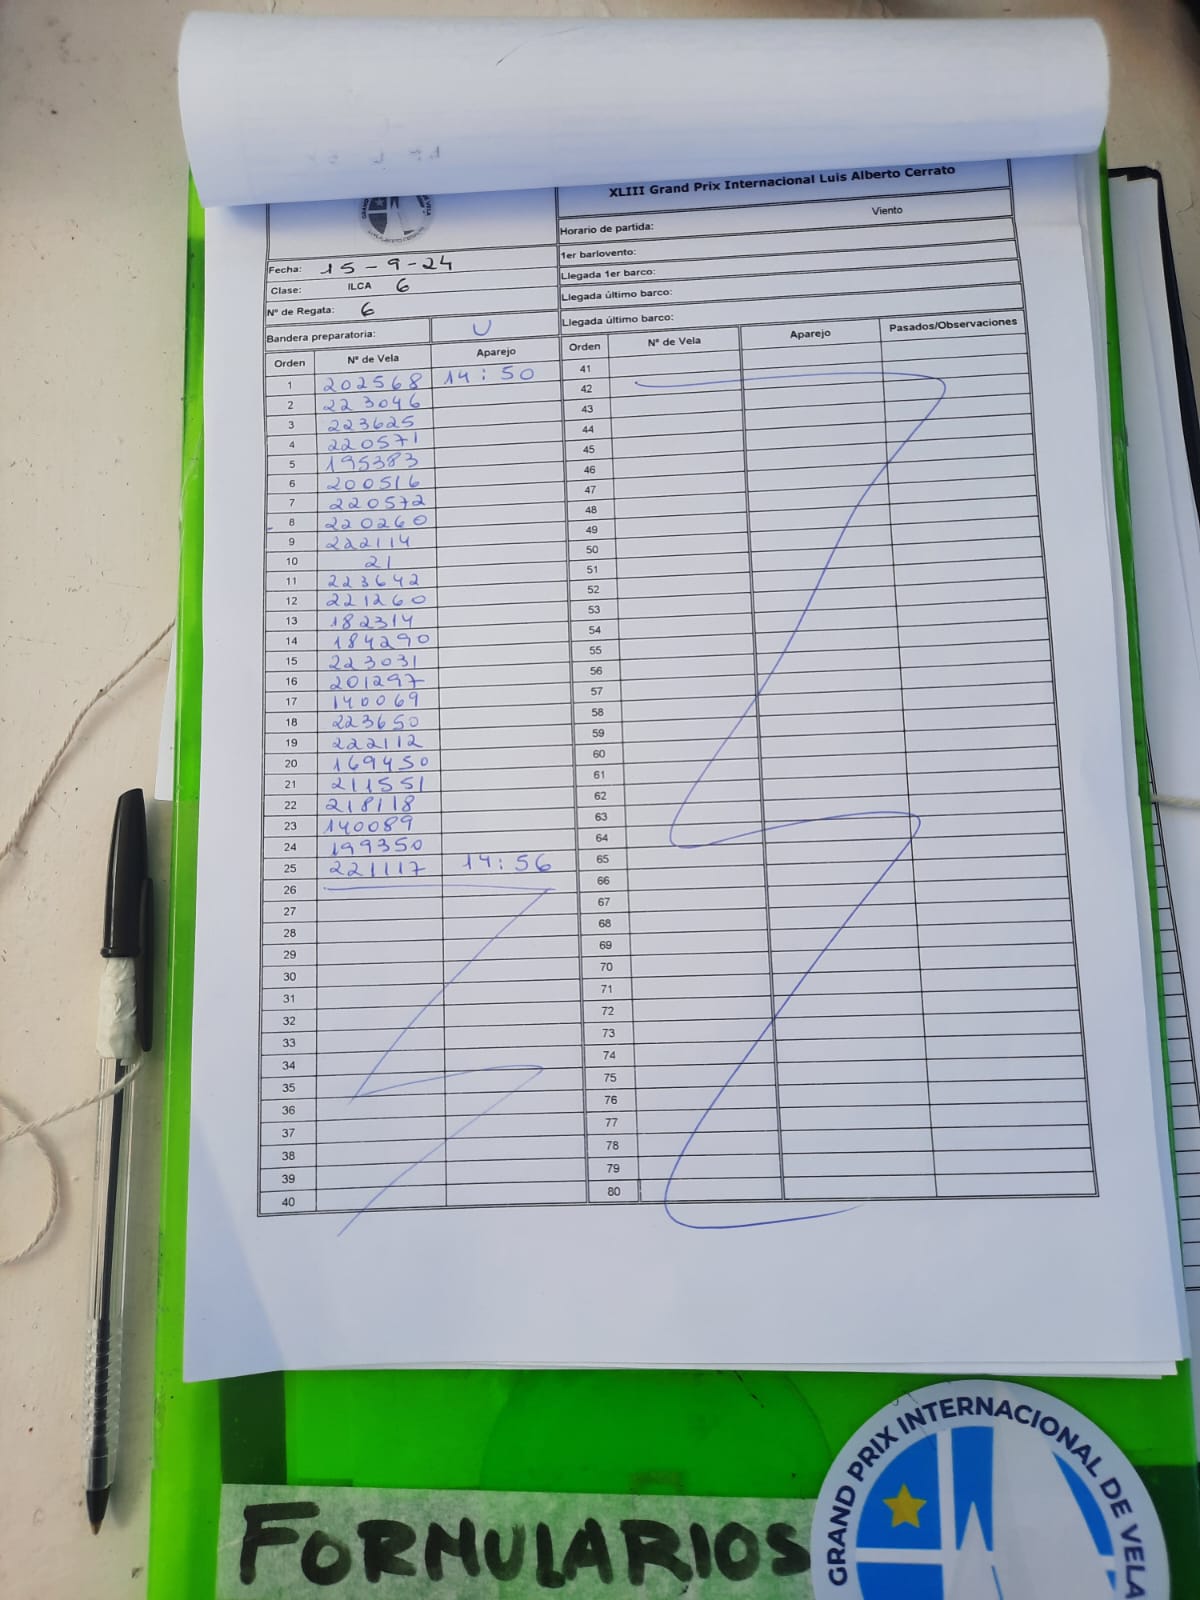 XLIII Grand Prix Internacional Luis Alberto Cerrato
Horario de partida: Viento
1er barlovento:
Llegada 1er barco:
Llegada último barco:
Llegada último barco:
Fecha: 15-9-24
Clase: ILCA 6
Nº de Regata: 6
Bandera preparatoria: U
Orden Nº de Vela Aparejo
1 202568 14:50
2 223046
3 223625
4 220571
5 195383
6 200516
7 220572
8 220260
9 222114
10 21
11 223642
12 221260
13 182314
14 184290
15 223031
16 201297
17 140069
18 223650
19 222112
20 169450
21 211551
22 218118
23 140089
24 199350
25 221117 14:56
26
27
28
29
30
31
32
33
34
35
36
37
38
39
40
Orden Nº de Vela Aparejo Pasados/Observaciones
41
42
43
44
45
46
47
48
49
50
51
52
53
54
55
56
57
58
59
60
61
62
63
64
65
66
67
68
69
70
71
72
73
74
75
76
77
78
79
80
FORMULARIOS
GRAND PRIX INTERNACIONAL DE VELA